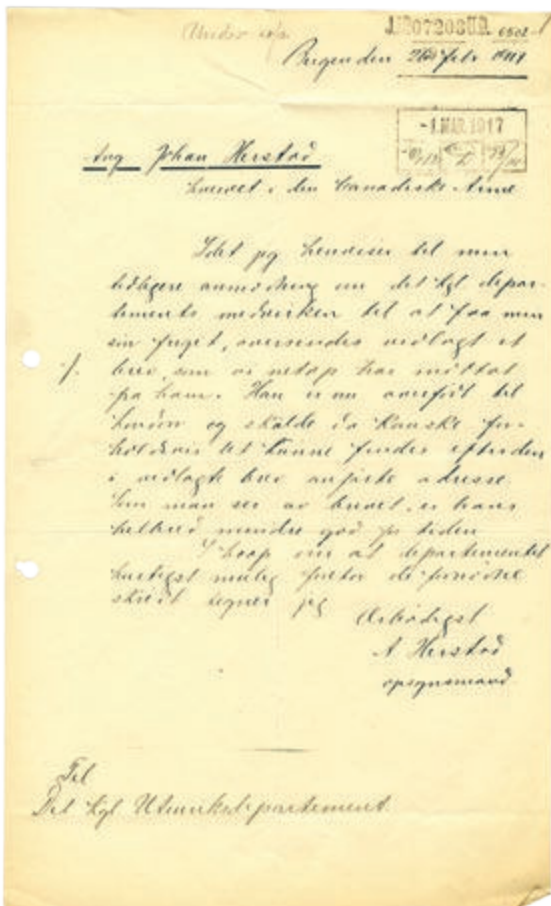 Under
J.№07208UD. 6502
Bergen den 26de febr 1917
-1.MAR.1917
Ang Johan Herstad
hvervet i den Canadiske Arme
Idet jeg henviser til min
tidligere anmodning om det kgl depar-
tements medvirken til at faa min
søn friget, oversendes vedlagt et
./. brev, som vi netop har mottat
fra ham. Han er nu overført til
London og skulde da kanske for-
holdsvis let kunne findes efter den
i vedlagte brev anførte adresse.
Som man ser av brevet, er hans
helbred mindre god for tiden
I haap om at departementet
hurtigst mulig foretar de fornødne
skridt tegner jeg
Ærbødigst
A Herstad
opsynsmand
Til
Det kgl Utenriksdepartement.